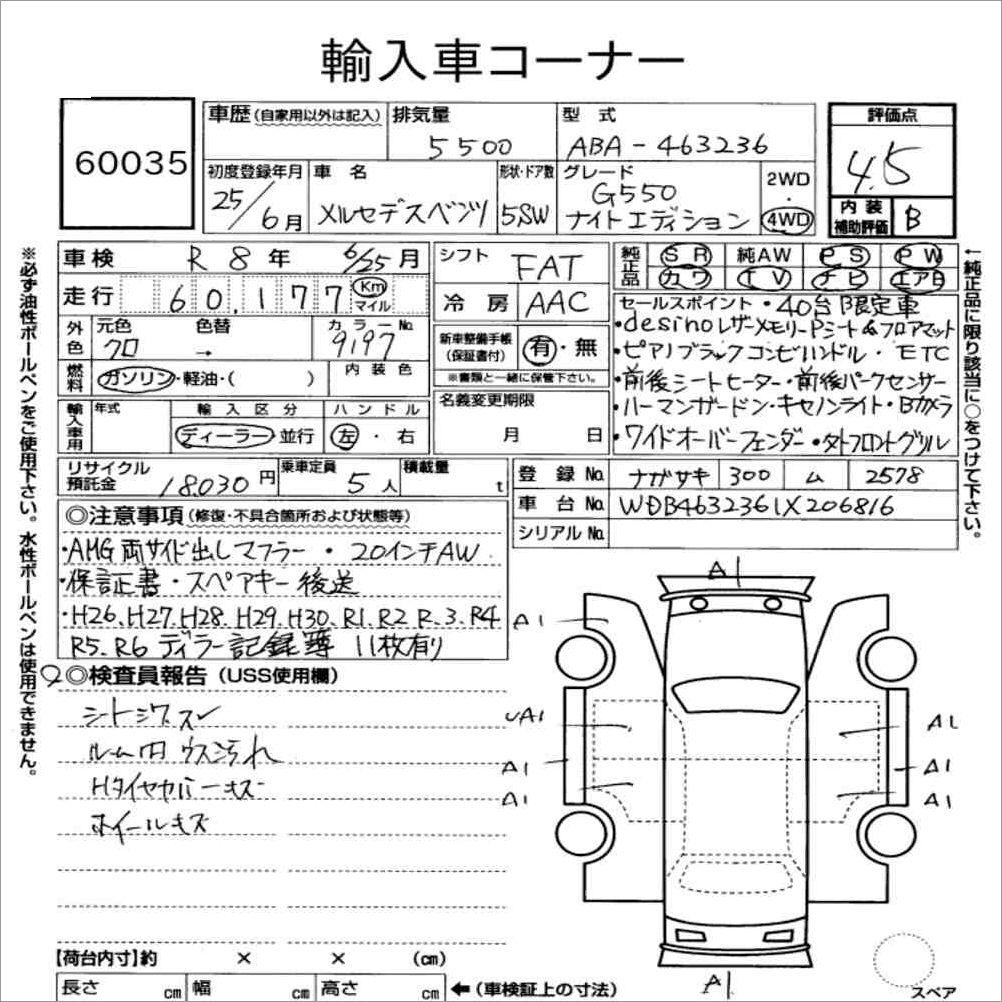 輸入車コーナー
60035
車歴 (自家用以外は記入)
排気量
5500
型式
ABA-463236
評価点
4.5
初度登録年月
25/6月
車名
メルセデスベンツ
形状・ドア数
5SW
グレード
G550
ナイトエディション
2WD
・
4WD
内装
補助評価
B
車検 R8年 6/25月
走行 60,177 Km マイル
外色
元色
クロ
色替
→
カラーNo.
9197
燃料
ガソリン・軽油・( )
内装色
輸入車用
年式
輸入区分
ディーラー・並行
ハンドル
左・右
シフト FAT
冷房 AAC
新車整備手帳
(保証書付)
有・無
※書類と一緒に保管下さい。
名義変更期限
月 日
純正品
SR 純AW PS PW
カワ TV ナビ エアB
セールスポイント・40台限定車
・desinoレザーメモリーPシート&フロアマット
・ピアノブラックコンビハンドル・ETC
・前後シートヒーター・前後パークセンサー
・ハーマンガードン・キセノンライト・Bカメラ
・ワイドオーバーフェンダー・タトフロントグリル
←純正品に限り該当に○をつけて下さい。
※必ず油性ボールペンをご使用下さい。水性ボールペンは使用できません。
リサイクル
預託金
18030円
乗車定員
5人
積載量
t
登録No. ナガサキ 300 ム 2578
車台No. WDB4632361X206816
シリアルNo.
◎注意事項 (修復・不具合箇所および状態等)
・AMG両サイド出しマフラー・20インチAW
・保証書・スペアキー後送
・H26.H27.H28.H29.H30.R1.R2.R.3.R4
R5.R6ディラー記録簿 11枚有り
◎検査員報告 (USS使用欄)
シートシワスレ
ルーム内ウス汚れ
Hタイヤカバーキズ
ホイールキズ
A1
A1
UA1
A1
A1
A1
A1
A1
A1
【荷台内寸】約 × × (cm)
長さ cm 幅 cm 高さ cm ←(車検証上の寸法)
スペア